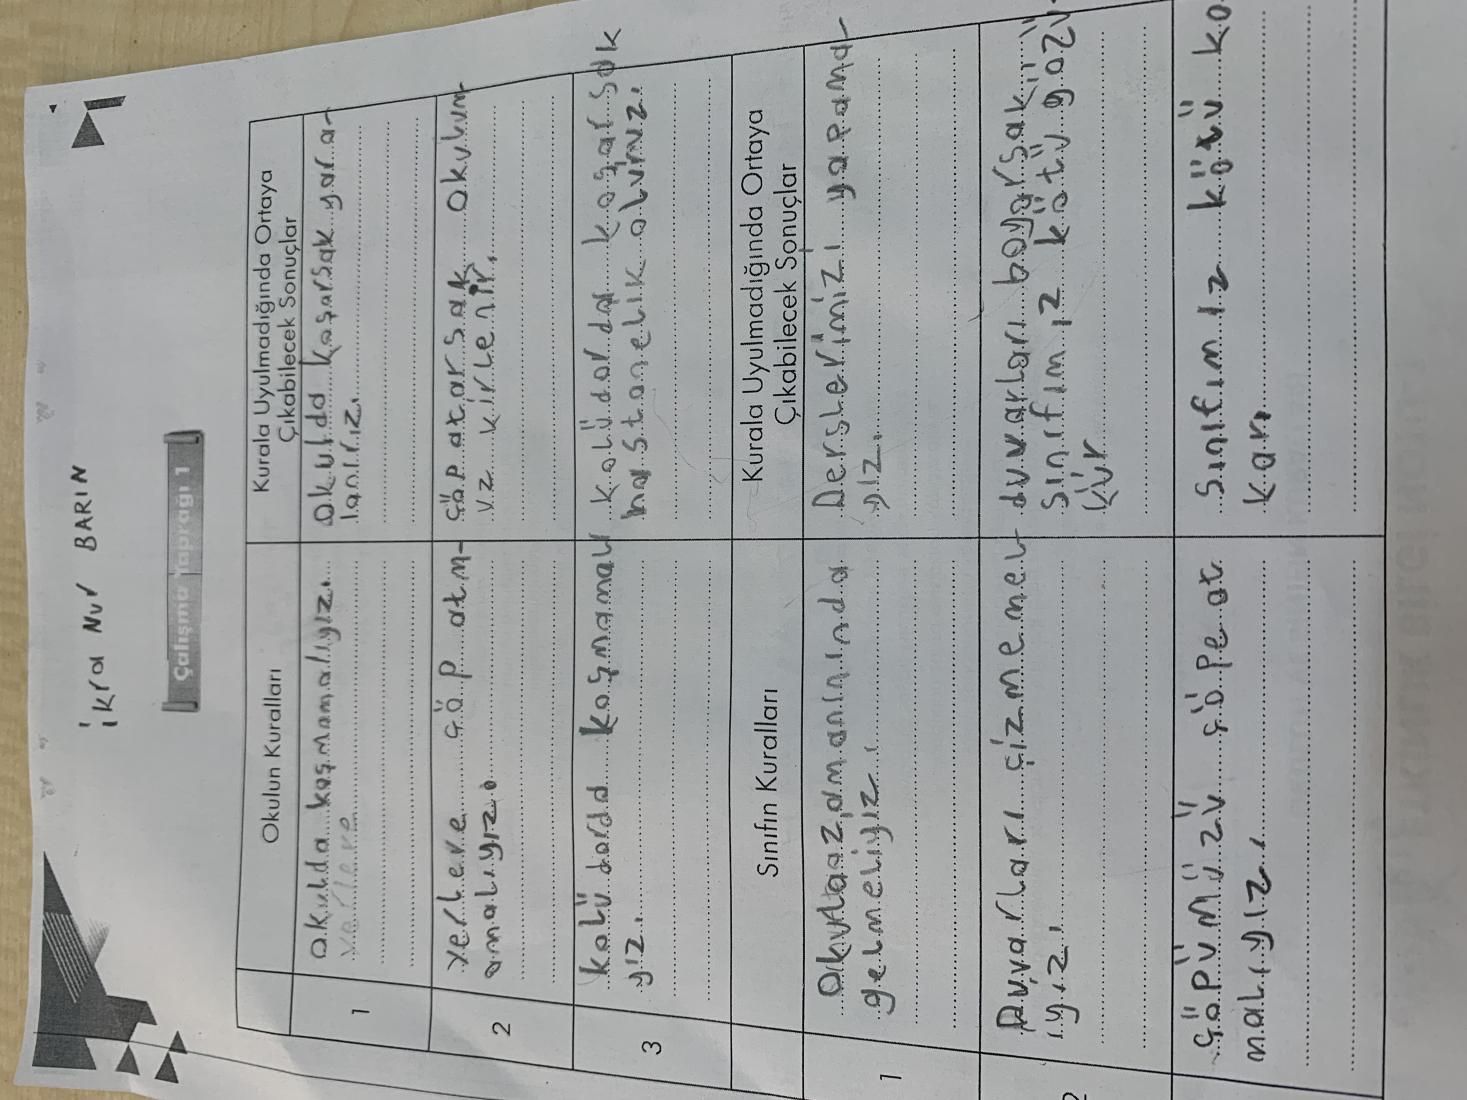 İkra Nur BARIN
Çalışma Yaprağı 1
Okulun Kuralları
Kurala Uyulmadığında Ortaya
Çıkabilecek Sonuçlar
1
Okulda koşmamalıyız.
yerlere
Okulda koşarsak yara-
lanırız.
2
yerlere çöp atm-
amalıyız.
çöp atarsak okulum-
uz kirlenir.
3
kolüdorda koşmamalı
yız.
kolüdorda koşarsak
hastanelik oluruz.
Sınıfın Kuralları
Kurala Uyulmadığında Ortaya
Çıkabilecek Sonuçlar
1
gelmeliyiz.
Derslerimizi yapama-
yız.
2
Duvarları çizmemel-
iyiz.
duvarları boyarsak
sınıfımız kötü gözü-
kür
çöpümüzü çöpe at
malıyız.
Sınıfımız kötü ko-
kar.